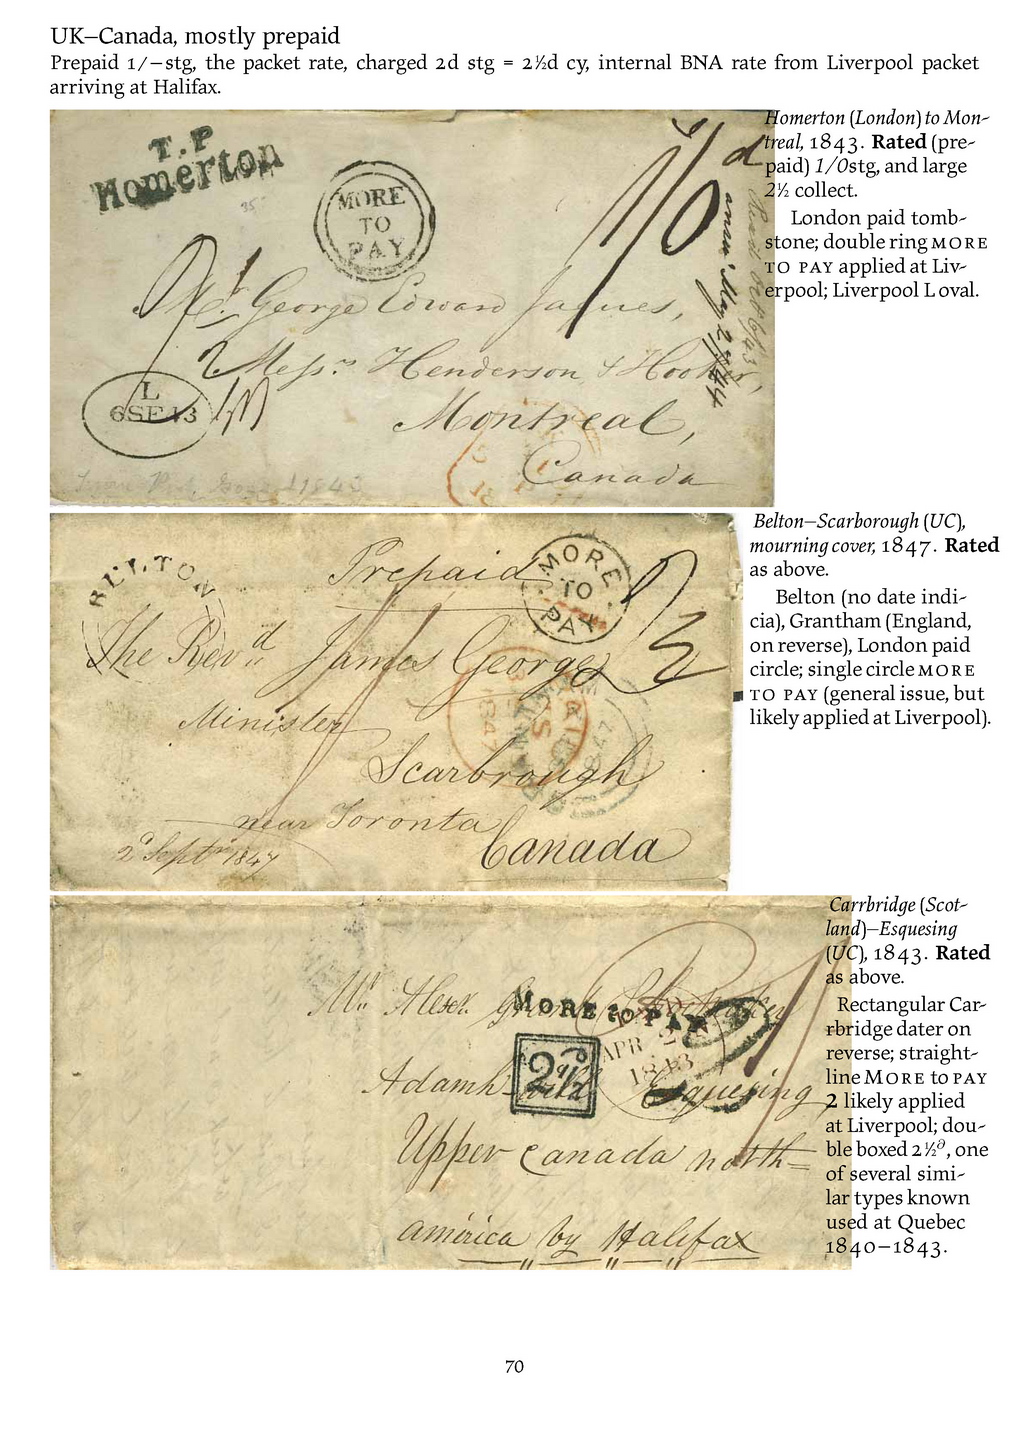 UK–Canada, mostly prepaid
Prepaid 1/–stg, the packet rate, charged 2d stg = 2½d cy, internal BNA rate from Liverpool packet
arriving at Halifax.
T.P
Homerton
MORE
TO
PAY
1/0
d
Mr George Edward Jaques,
Messrs Henderson & Hooker,
Montreal,
Canada
L
6SE43
Homerton (London) to Mon-
treal, 1843. Rated (pre-
paid) 1/0stg, and large
2½ collect.
London paid tomb-
stone; double ring MORE
TO PAY applied at Liv-
erpool; Liverpool L oval.
BELTON
Prepaid
MORE
TO
PAY
2½
The Revd James George
Minister
Scarbrough
near Toronto
Canada
2d Septr 1847
Belton–Scarborough (UC),
mourning cover, 1847. Rated
as above.
Belton (no date indi-
cia), Grantham (England,
on reverse), London paid
circle; single circle MORE
TO PAY (general issue, but
likely applied at Liverpool).
Mr Alexr
MORE to PAY
APR 2
1843
2½d
Esquesing
Upper Canada north=
america by Halifax
Carrbridge (Scot-
land)–Esquesing
(UC), 1843. Rated
as above.
Rectangular Car-
rbridge dater on
reverse; straight-
line MORE to PAY
2 likely applied
at Liverpool; dou-
ble boxed 2½d, one
of several simi-
lar types known
used at Quebec
1840–1843.
70